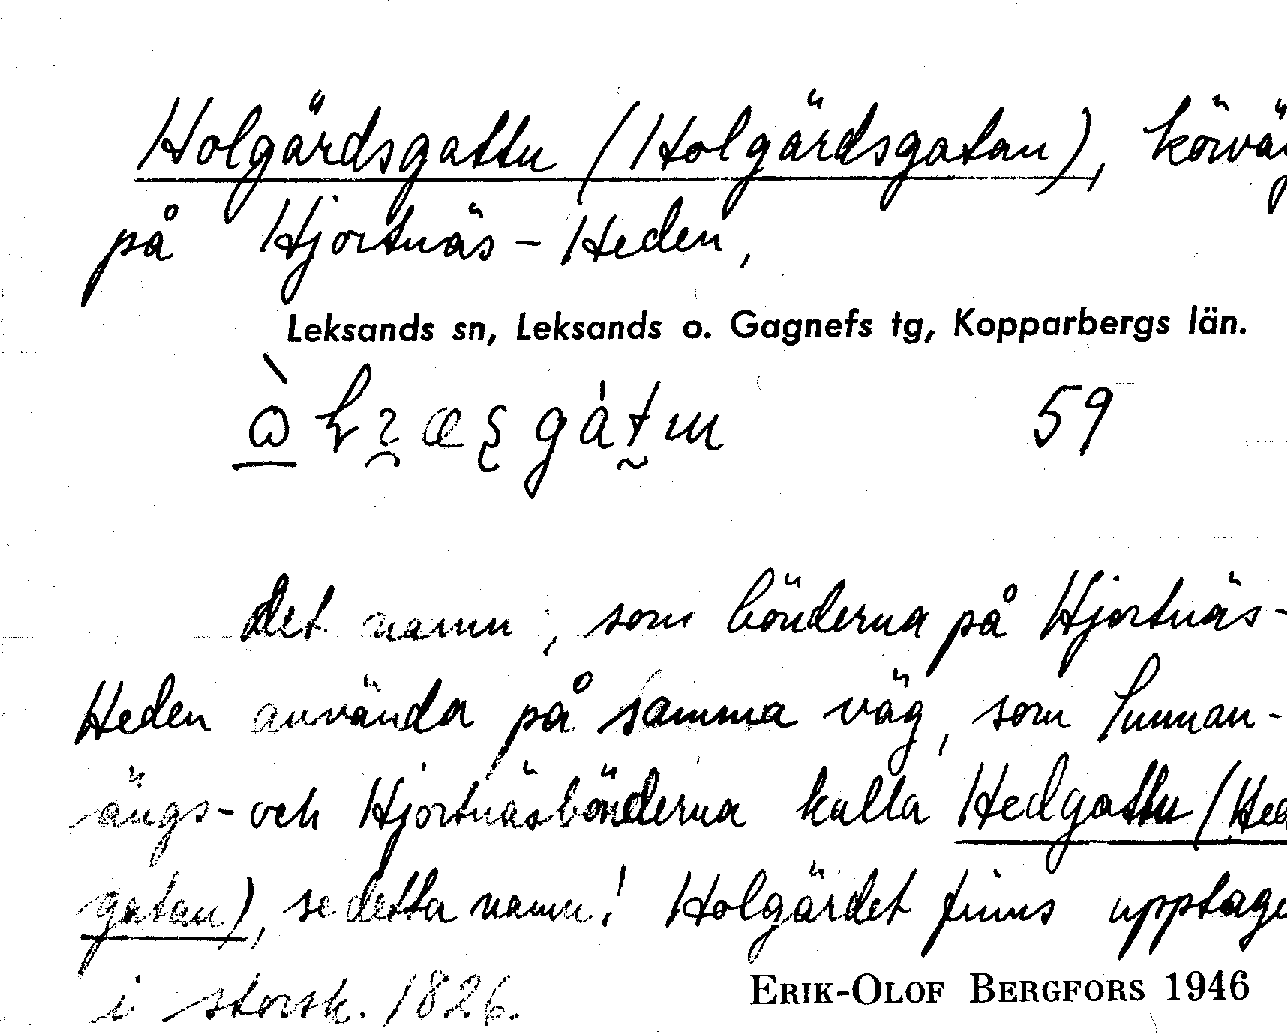 Holgärdsgattu (Holgärdsgatan), körvä
på Hjortnäs-Heden,
Leksands sn, Leksands o. Gagnefs tg, Kopparbergs län.
59
Det namn, som bönderna på Hjortnäs-
Heden använda på samma väg, som Sunnan-
ängs- och Hjortnäsbönderna kalla Hedgattu (Hed
gatan), se detta namn! Holgärdet finns upptage
i storsk. 1826.
ERIK-OLOF BERGFORS 1946